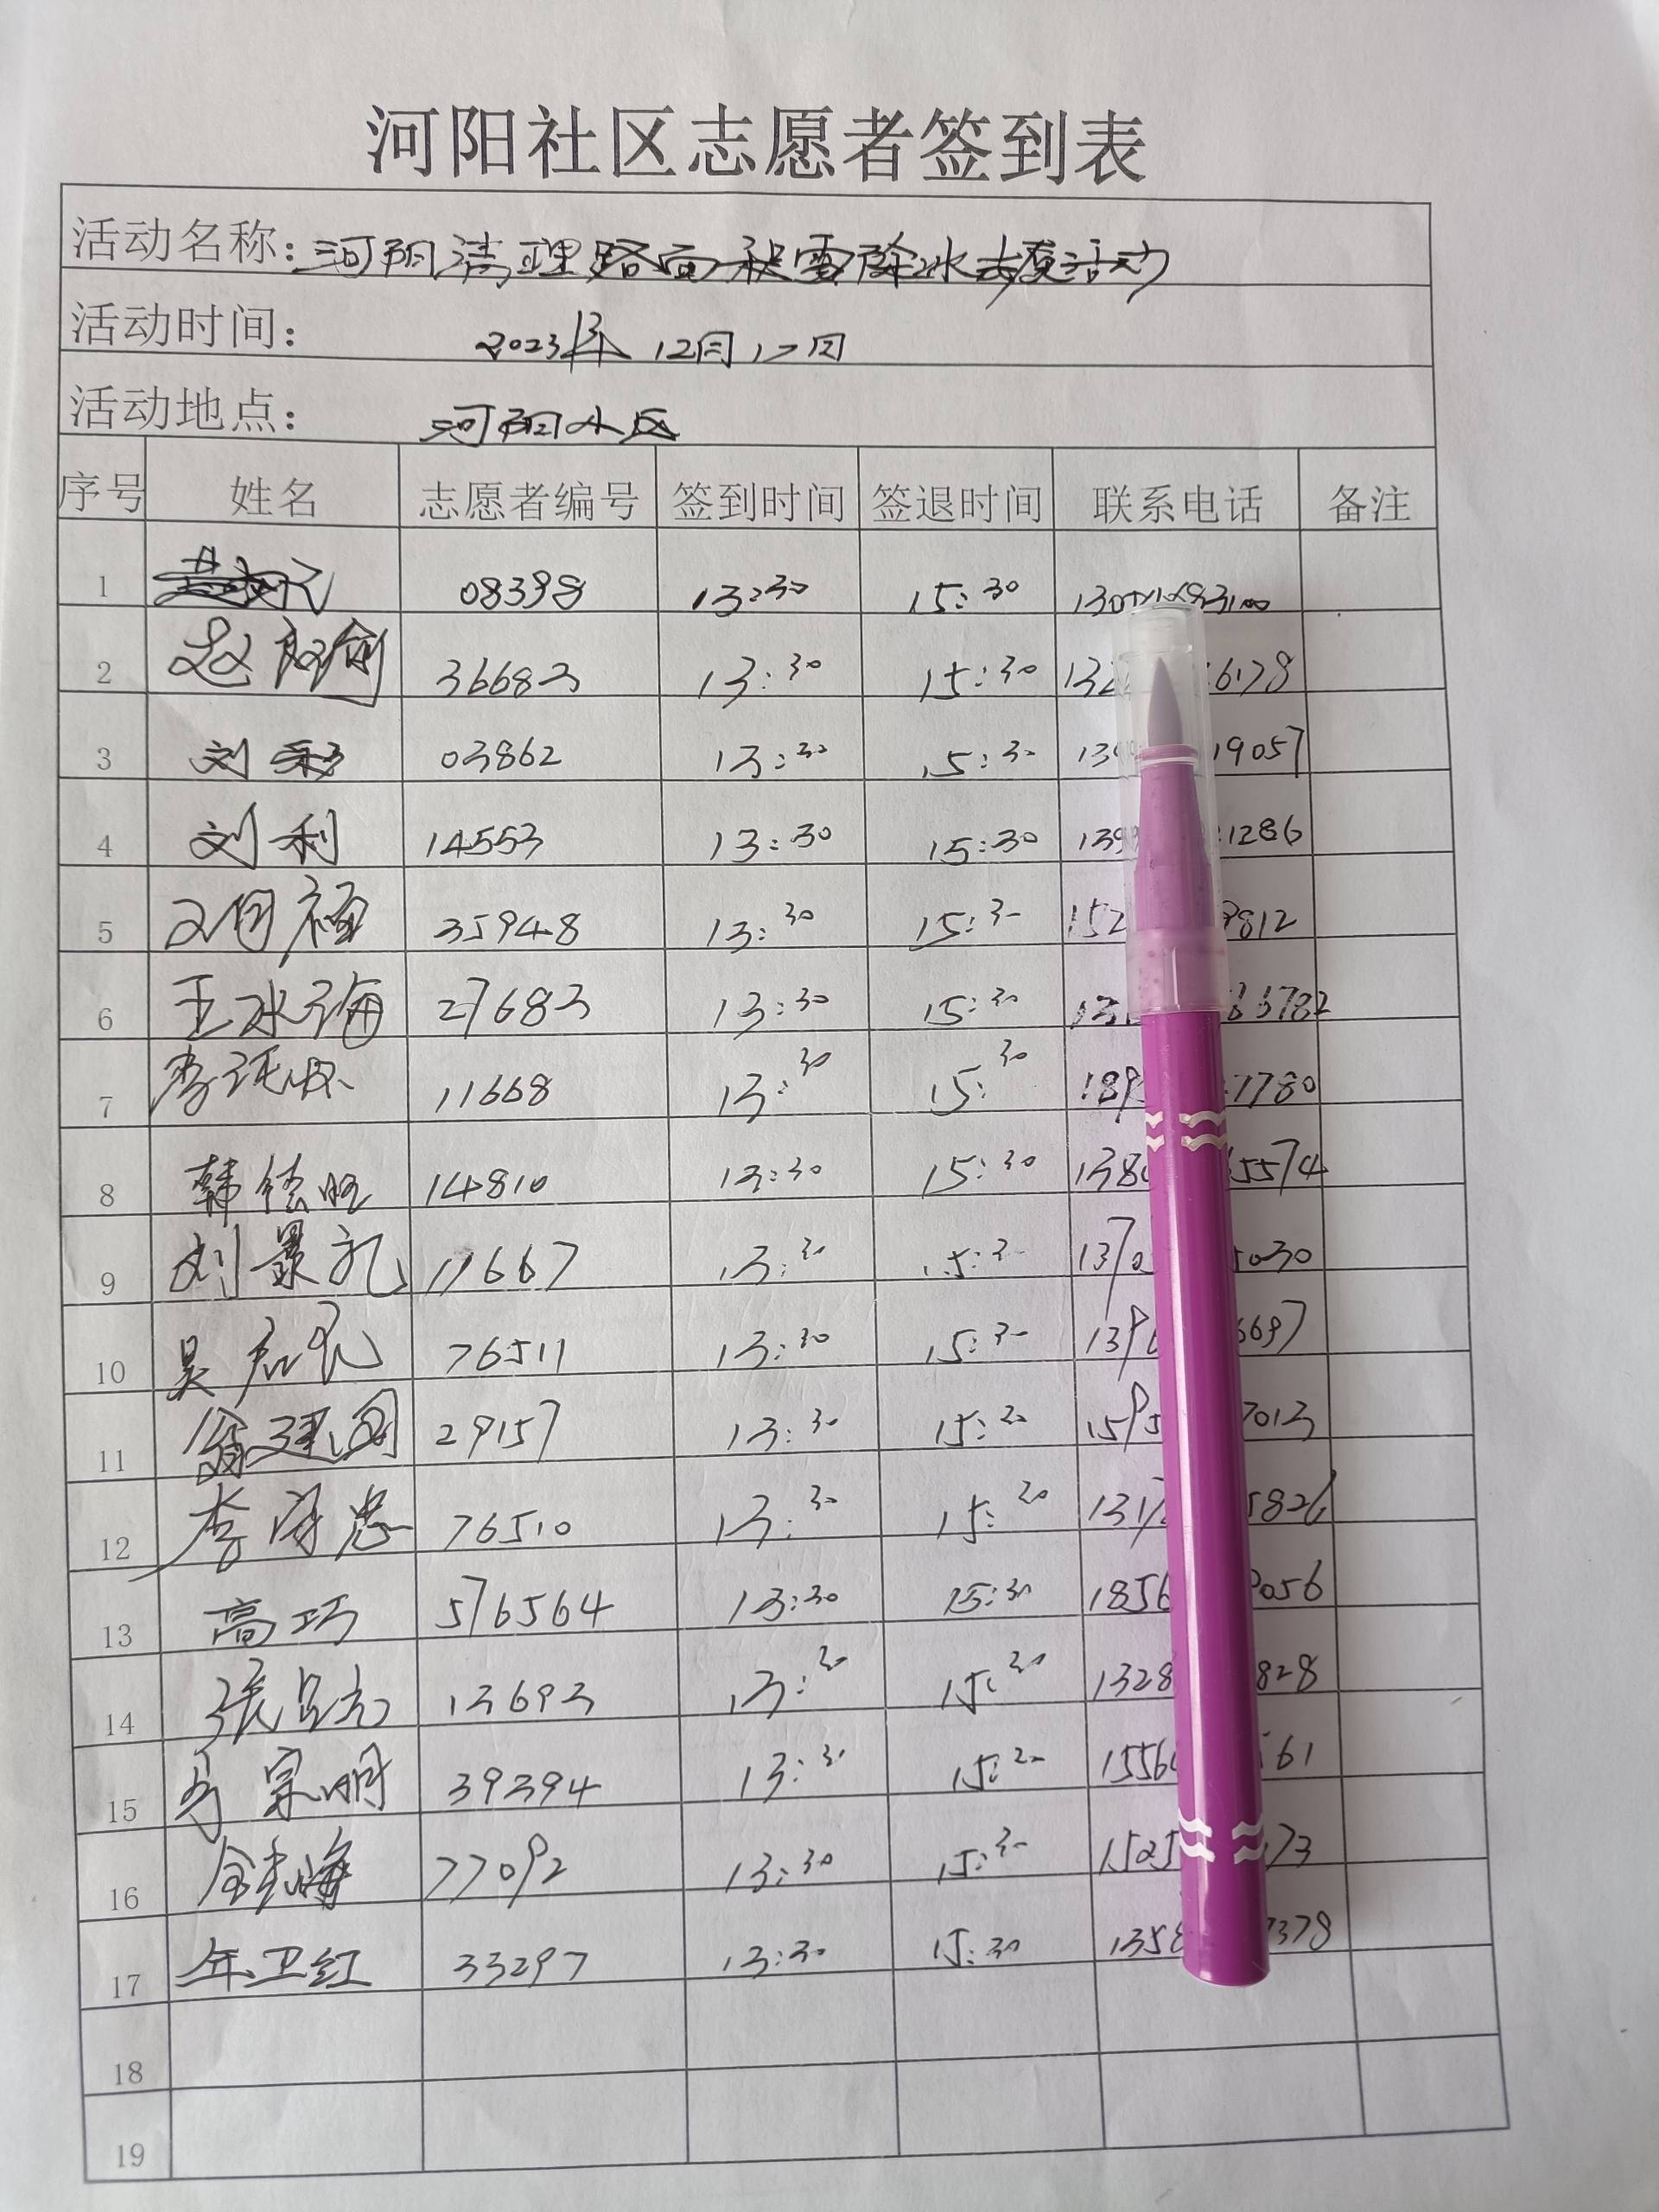 河阳社区志愿者签到表
活动名称: 河阳清理路面积雪除冰志愿活动
活动时间: 2023年12月17日
活动地点: 河阳小区
序号 姓名 志愿者编号 签到时间 签退时间 联系电话 备注
1 08398 13:30 15:30
2 赵 36683 13:30 15:30 132 6178
3 刘 03862 13:30 15:30 139 19057
4 刘利 14553 13:30 15:30 139 1286
5 35948 13:30 15:30 152 9812
6 王 27683 13:30 15:30 13 3782
7 李 11668 13:30 15:30 189 7780
8 韩 14810 13:30 15:30 138 5574
9 刘景礼 11667 13:30 15:30 1370 5030
10 吴 76511 13:30 15:30 139 6697
11 翁建国 29157 13:30 15:30 1595 7013
12 李 忠 76510 13:30 15:30 1317 5826
13 高巧 576564 13:30 15:30 1856 9056
14 张 13693 13:30 15:30 1328 828
15 马宗明 39394 13:30 15:30 1556 561
16 77092 13:30 15:30 1525 73
17 年卫红 33297 13:30 15:30 1358 7378
18
19